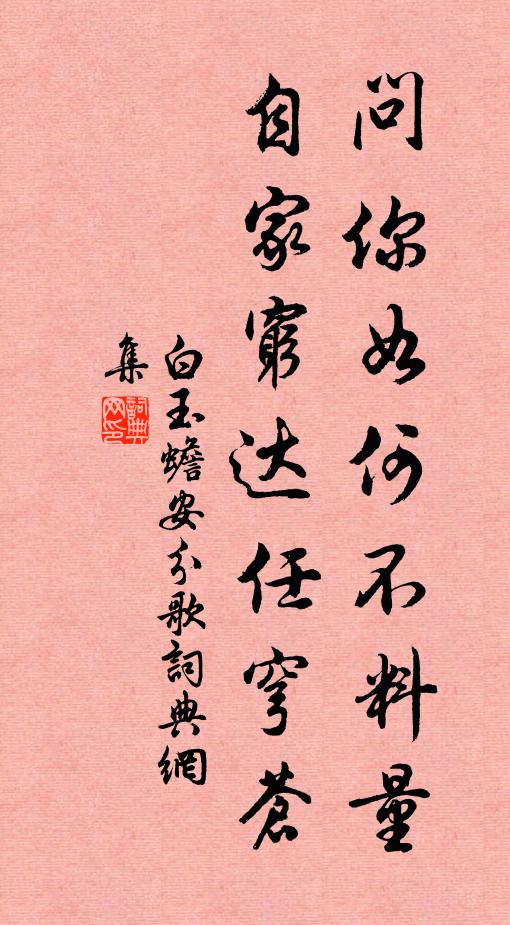 问你如何不料量
自家窮达任穹蒼
白玉蟾安分歌詞典網
集
詞典
网印